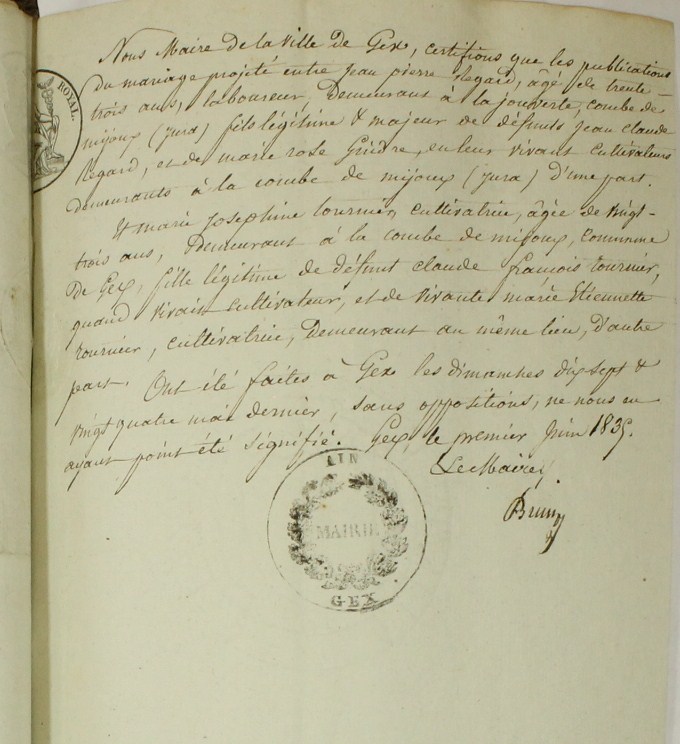 Nous Maire de la ville de Gex, certifions que les publications
du mariage projeté entre Jean pierre Regard, âgé de trente-
trois ans, laboureur, demeurant à la jouverte, combe de
mijoux (jura) fils légitime & majeur de défunts jean claude
Regard, et de marie rose Gridre, en leur vivant cultivateurs
demeurants à la combe de mijoux (jura) d'une part.
Et marie Josephine tournier, cultivatrice, âgée de vingt-
trois ans, demeurant à la combe de mijoux, commune
de Gex, fille légitime de défunt claude françois tournier,
quand vivait cultivateur, et de vivante marie Etiennette
tournier, cultivatrice, demeurant au même lieu, d'autre
part.
Ont été faites à Gex les dimanches dix sept &
vingt quatre mai dernier, sans oppositions, ne nous en
ayant point été signifié. Gex, le premier Juin 1835.
Le Maire,
ROYAL.
AIN
MAIRIE
GEX